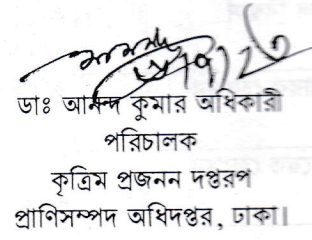 ডাঃ আনন্দ কুমার অধিকারী
পরিচালক
কৃত্রিম প্রজনন দপ্তরপ
প্রাণিসম্পদ অধিদপ্তর, ঢাকা।